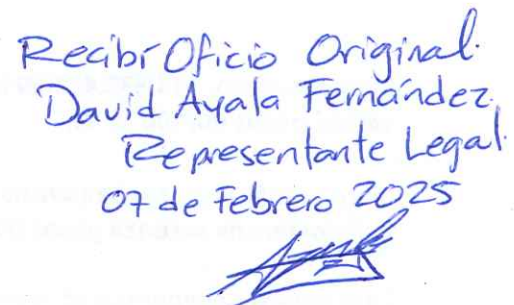 Recibí Oficio Original.
David Ayala Fernández.
Representante Legal
07 de Febrero 2025